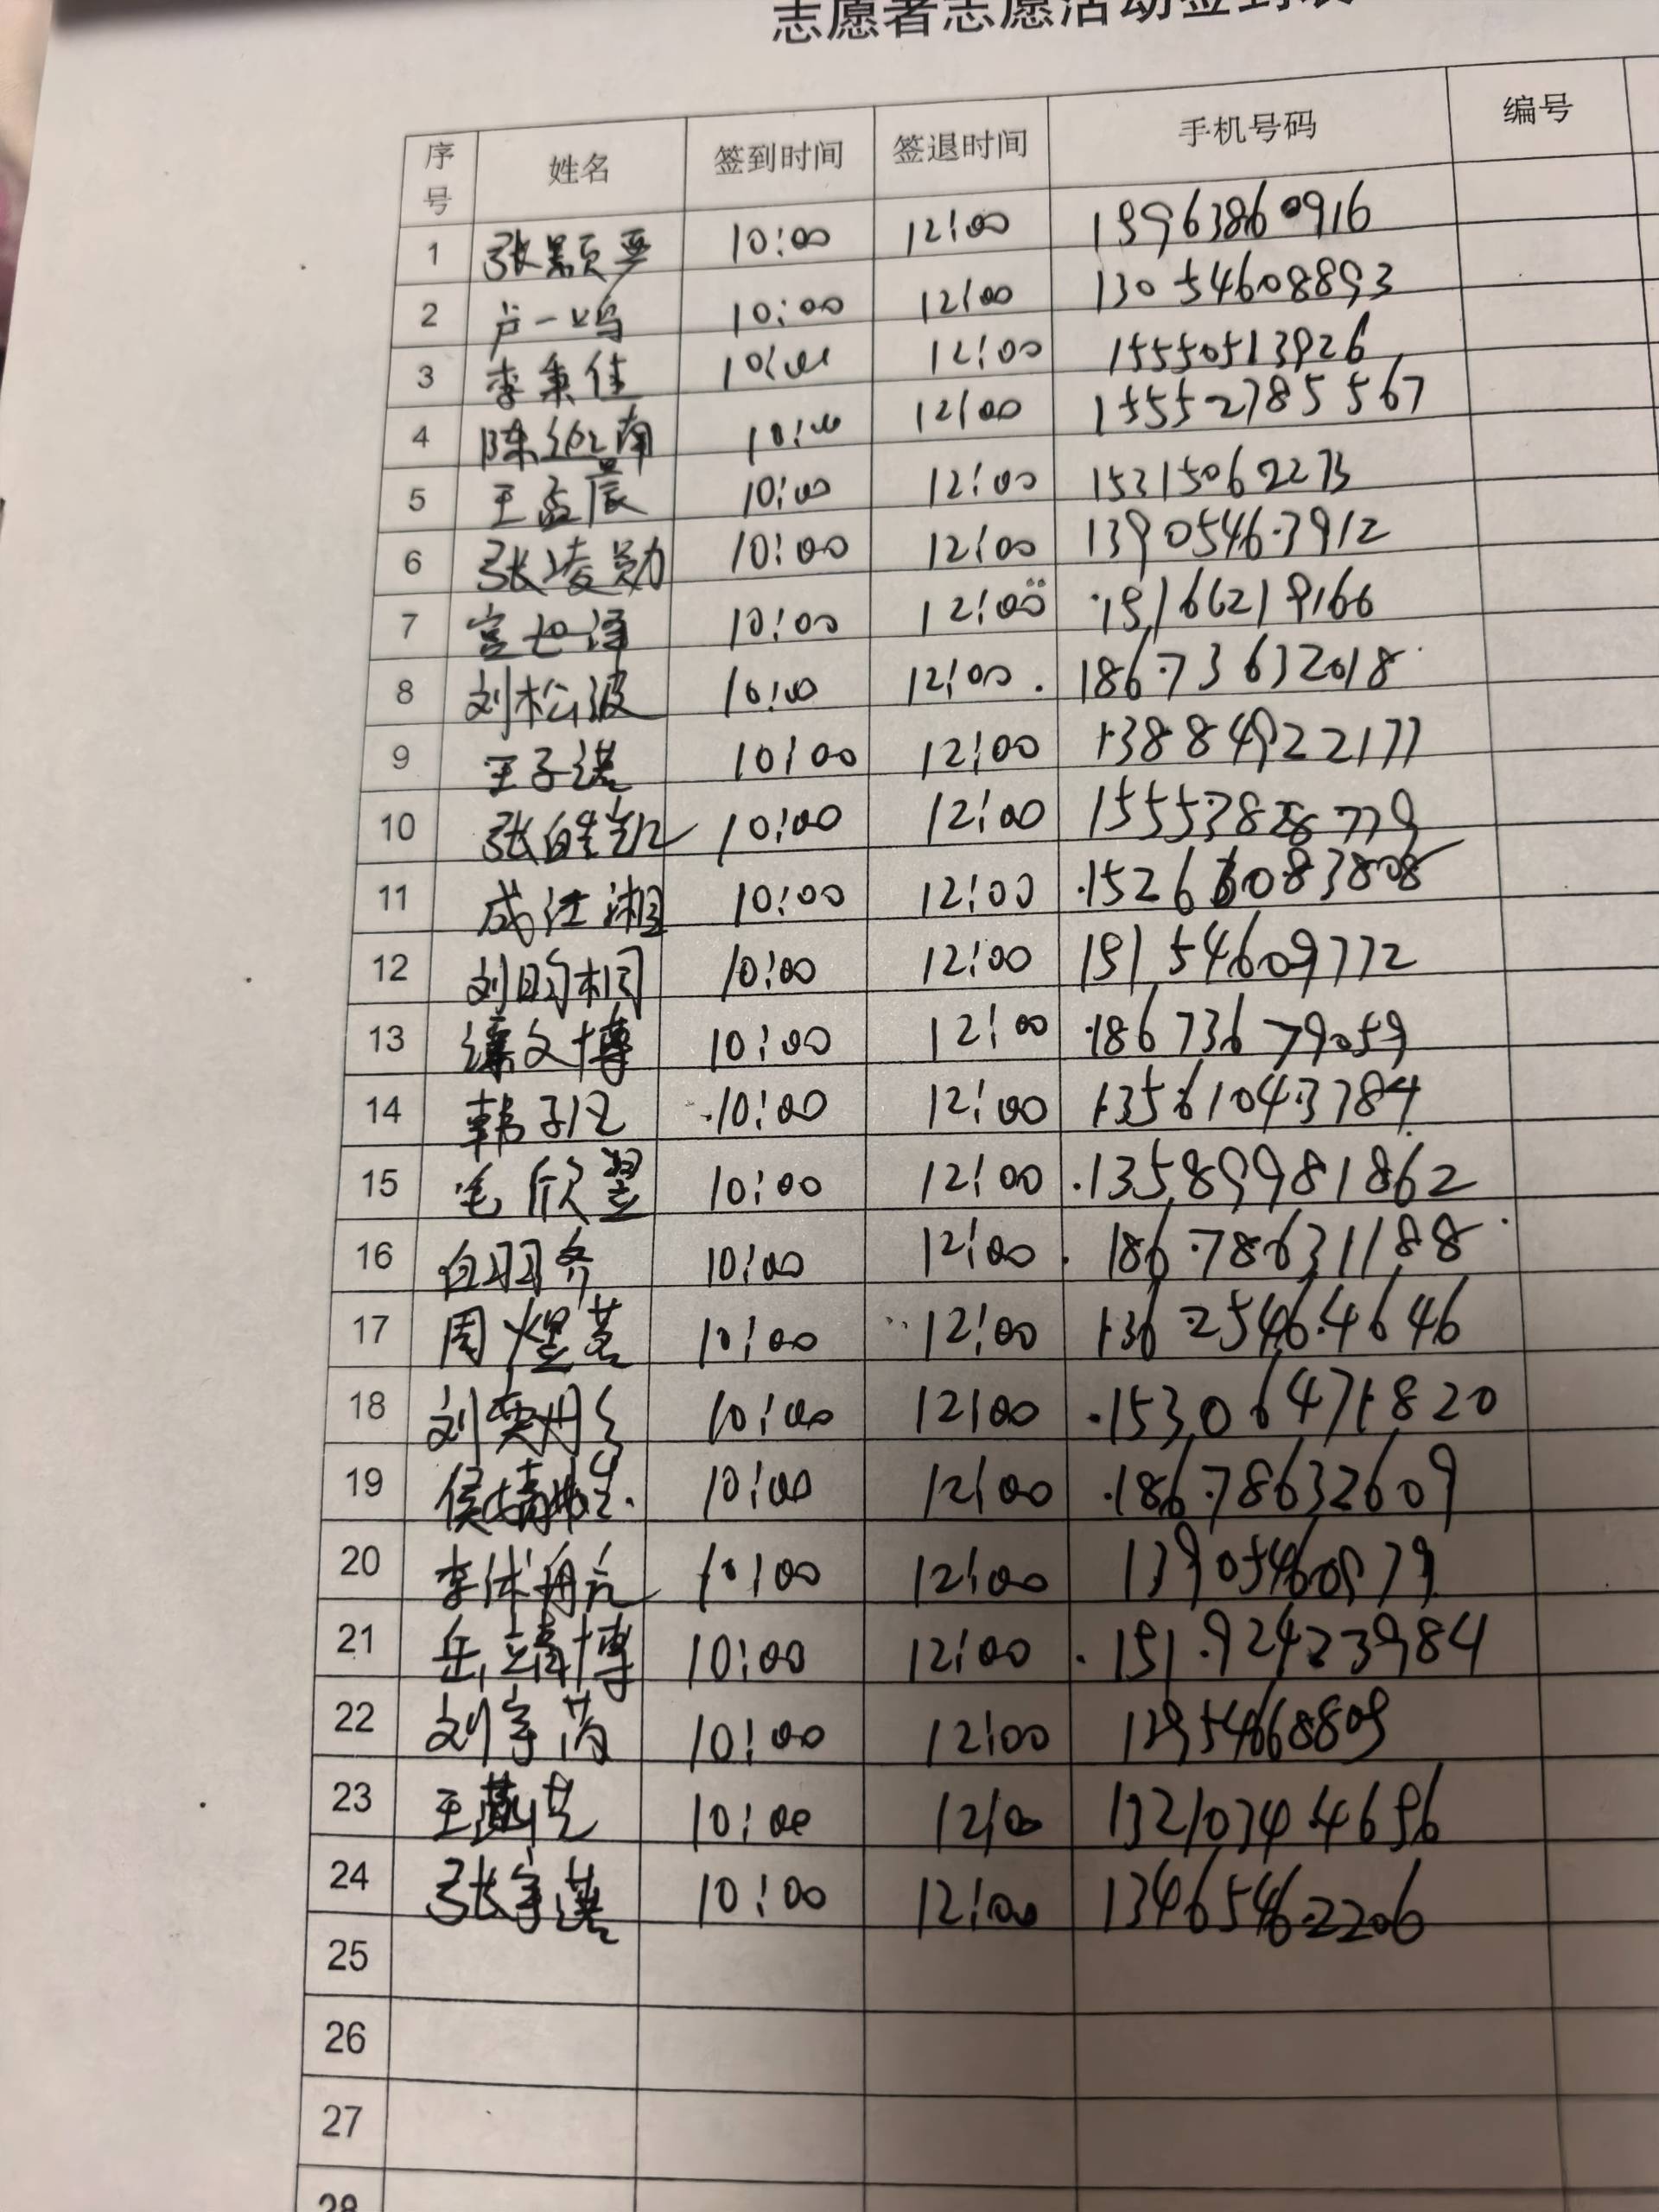 志愿者志愿活动签到表
序号 姓名 签到时间 签退时间 手机号码 编号
1 张颢严 10:00 12:00 15963860916
2 卢一鸣 10:00 12:00 13054608893
3 李秉佳 10:00 12:00 15550513926
4 陈 南 10:00 12:00 15552785567
5 王孟宸 10:00 12:00 15315062273
6 张凌勋 10:00 12:00 13905463912
7 宫世泽 10:00 12:00 15166219166
8 刘松波 10:00 12:00 18673632018
9 王子淇 10:00 12:00 13884922177
10 张皓凯 10:00 12:00
11 成江湘 10:00 12:00
12 刘昀桐 10:00 12:00 15154609772
13 文博 10:00 12:00 18673679059
14 韩子凡 10:00 12:00 13561043784
15 毛欣翌 10:00 12:00 13589981862
16 白羽齐 10:00 12:00 18678631188
17 周煜茗 10:00 12:00 13625464646
18 刘奕彤 10:00 12:00 15306471820
19 侯婧 10:00 12:00 18678632609
20 李 航 10:00 12:00
21 岳靖博 10:00 12:00 15192423984
22 刘宇芮 10:00 12:00
23 王 10:00 12:00 13210344696
24 张宇淇 10:00 12:00 13465462206
25
26
27
28